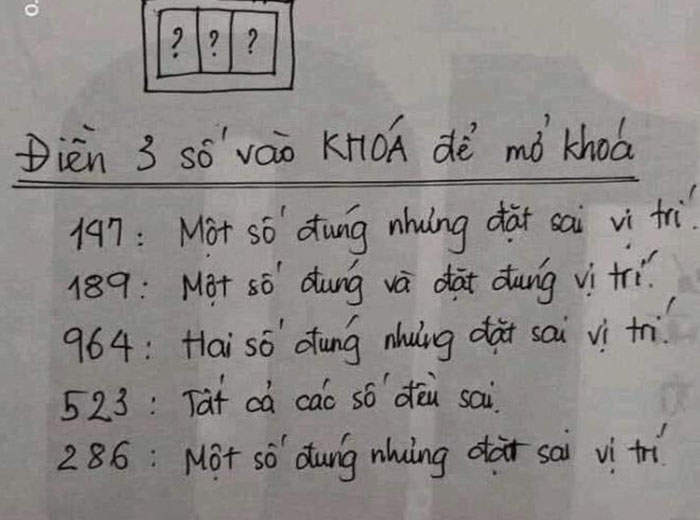 ? ? ?
Điền 3 số vào KHOÁ để mở khoá
147: Một số đúng nhưng đặt sai vị trí.
189: Một số đúng và đặt đúng vị trí.
964: Hai số đúng nhưng đặt sai vị trí.
523: Tất cả các số đều sai.
286: Một số đúng nhưng đặt sai vị trí